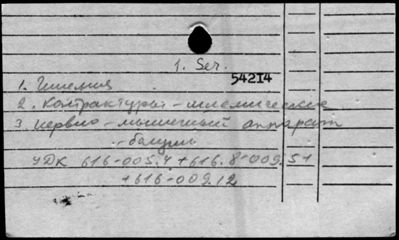 1. Ser.
54214
1. Ишемия
2. Контрактуры - ишемические
3. нервно - мышечный аппарат
УДК 616-005.4+616.8-009.51
+616-009.12